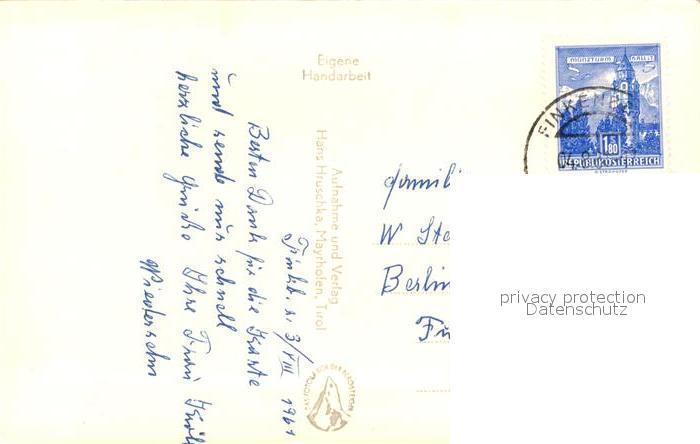 Eigene
Handarbeit
MÜNZTURM HALL i. T.
S 1.80
REPUBLIK ÖSTERREICH
FINKENB
Aufnahme und Verlag
Hans Hruschka, Mayrhofen, Tirol
Finkb. d. 3/VIII 1961
Besten Dank für die Karte
und sende nur schnell
herzliche Grüße Ihre Frau
Wiedersehn
Famili
W Ste
Berlin
privacy protection
Datenschutz